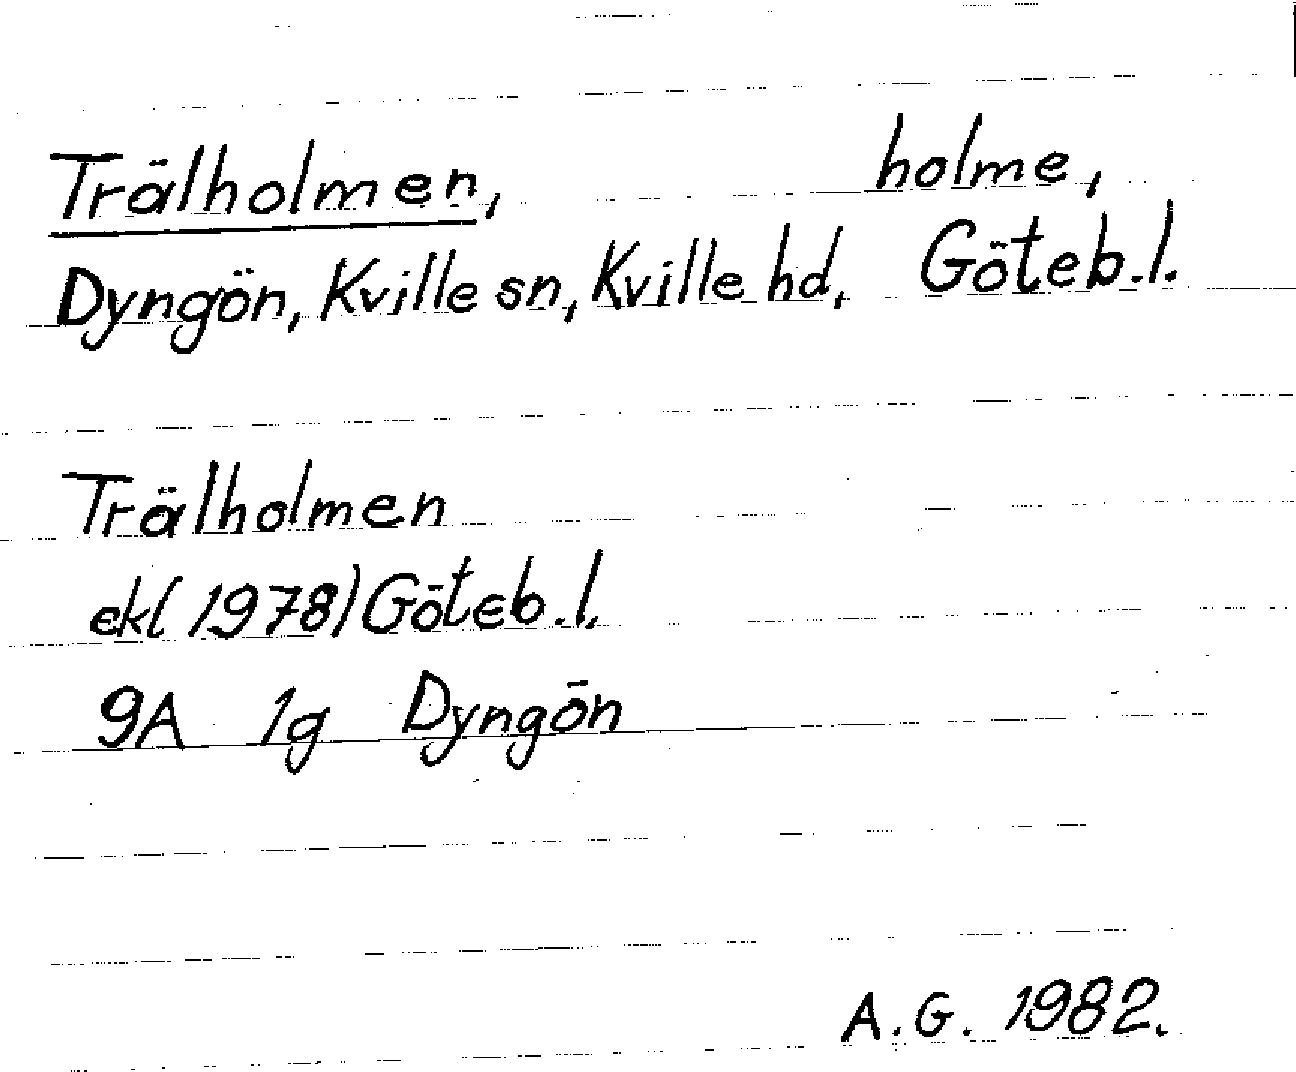 Trälholmen, holme,
Dyngön, Kville sn, Kville hd, Göteb.l.
Trälholmen
ekl (1978) Göteb.l.
9A 1g Dyngön
A.G. 1982.